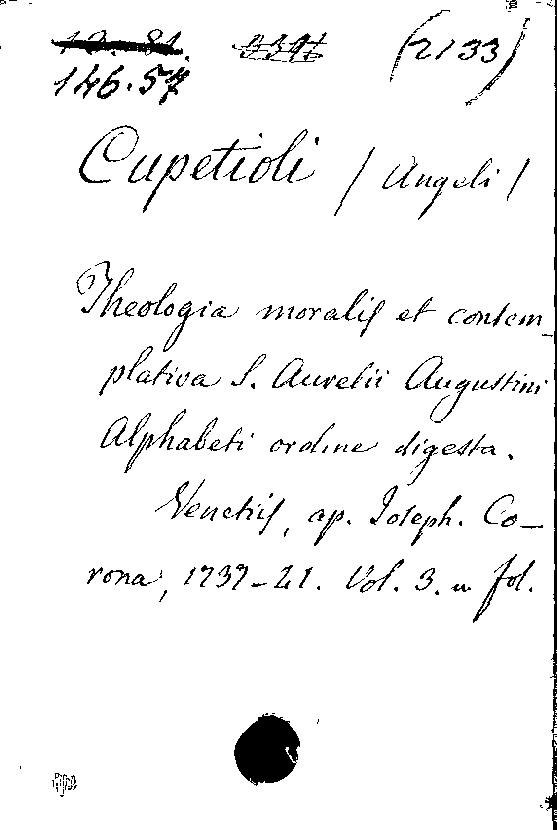 (2133)
146.57
Cupetioli / Angeli /
Theologia moralis et contem_
plativa S. Aurelii Augustini
Alphabeti ordine digesta.
Venetiis, ap. Joseph. Co_
rona, 1737-41. Vol. 3. in fol.